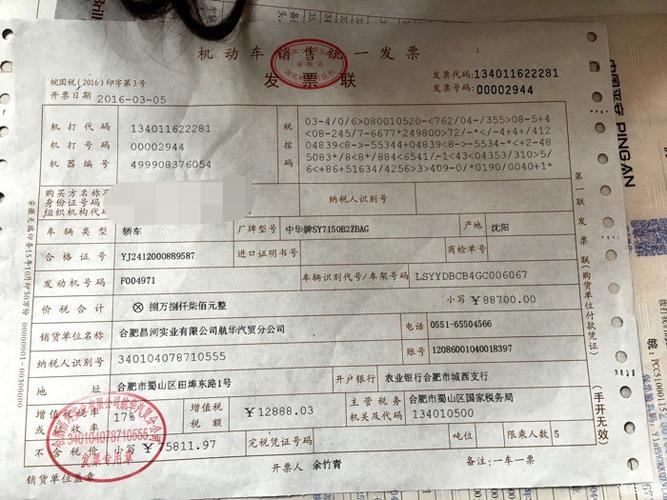 机动车销售统一发票
发票联
皖国税(2016)印字第3号
开票日期 2016-03-05
发票代码:134011622281
发票号码:00002944
机打代码 134011622281
机打号码 00002944
机器编号 499908376054
税控码
03-4/0/6>080010520-<762/04-/355>08-5+4
<08-245/7-6677*249800>72/-*</-4+4/412
04839<8->-55344+04839<8->-5534-*<+2-48
5083*/8<8*/884<6541/-1<43<04353/310>5/
6<+86+51634/4256>3>409-0/*0190/0040+1*
购买方名称及
身份证号码/
组织机构代码
纳税人识别号
车辆类型 轿车 厂牌型号 中华牌SY7150B2ZBAG 产地 沈阳
合格证号 YJ2412000889587 进口证明书号 商检单号
发动机号码 F004971 车辆识别代号/车架号码 LSYYDBCB4GC006067
价税合计 ⊗ 捌万捌仟柒佰元整 小写 ¥88700.00
销货单位名称 合肥昌河实业有限公司航华汽贸分公司 电话 0551-65504566
纳税人识别号 340104078710555 账号 12086001040018397
地址 合肥市蜀山区田埠东路1号 开户银行 农业银行合肥市城西支行
增值税税率或征收率 17% 增值税税额 ¥12888.03 主管税务机关及代码 合肥市蜀山区国家税务局 134010500
不含税价 小写 ¥75811.97 完税凭证号码 吨位 限乘人数 5
销货单位盖章 开票人 余竹青 备注:一车一票
340104078710555
发票专用章
第一联 发票联(购货单位付款凭证)
(手开无效)
中国平安 PING AN